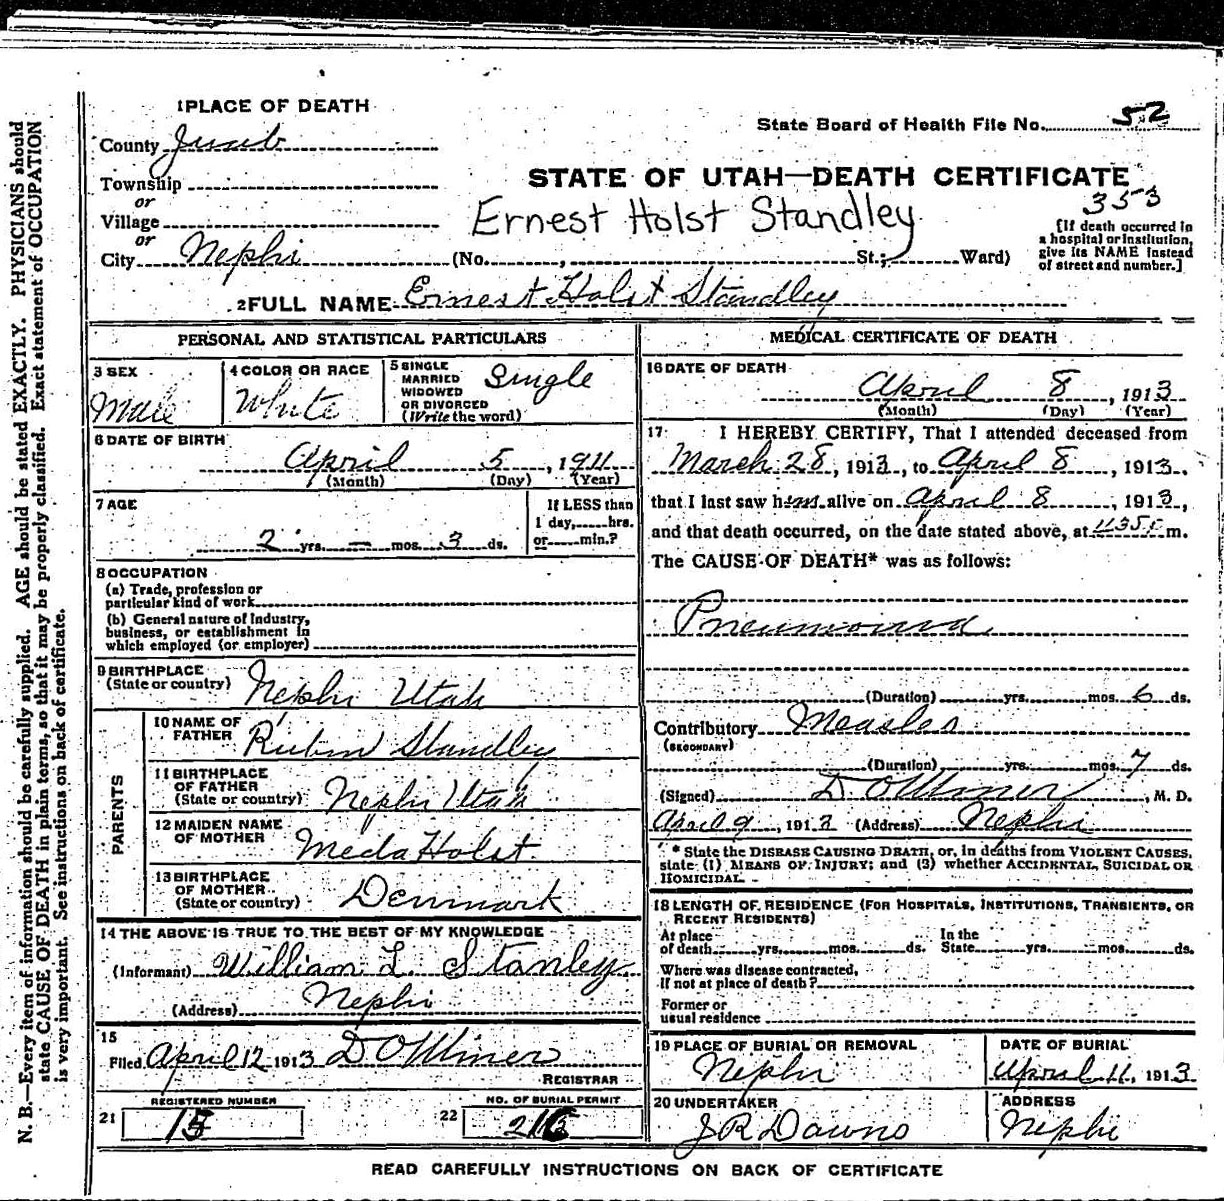 1 PLACE OF DEATH
State Board of Health File No. 52
County Juab
Township
STATE OF UTAH—DEATH CERTIFICATE
or
Village
Ernest Holst Standley
353
or
City Nephi (No. , St.; Ward)
[If death occurred in
a hospital or institution,
give its NAME instead
of street and number.]
2 FULL NAME Ernest Holst Standley
PERSONAL AND STATISTICAL PARTICULARS
3 SEX
Male
4 COLOR OR RACE
White
5 SINGLE
MARRIED
WIDOWED
OR DIVORCED
(Write the word)
Single
6 DATE OF BIRTH
April 5, 1911
(Month) (Day) (Year)
7 AGE
2 yrs. — mos. 3 ds.
If LESS than
1 day, hrs.
or min.?
8 OCCUPATION
(a) Trade, profession or
particular kind of work
(b) General nature of Industry,
business, or establishment in
which employed (or employer)
9 BIRTHPLACE
(State or country) Nephi Utah
PARENTS
10 NAME OF
FATHER Rubin Standley
11 BIRTHPLACE
OF FATHER
(State or country) Nephi Utah
12 MAIDEN NAME
OF MOTHER Meda Holst
13 BIRTHPLACE
OF MOTHER
(State or country) Denmark
14 THE ABOVE IS TRUE TO THE BEST OF MY KNOWLEDGE
(Informant) William L. Stanley
(Address) Nephi
15
Filed April 12 1913
REGISTRAR
REGISTERED NUMBER
21 15
NO. OF BURIAL PERMIT
22
MEDICAL CERTIFICATE OF DEATH
16 DATE OF DEATH
April 8, 1913
(Month) (Day) (Year)
17 I HEREBY CERTIFY, That I attended deceased from
March 28, 1913, to April 8, 1913,
that I last saw him alive on April 8, 1913,
and that death occurred, on the date stated above, at m.
The CAUSE OF DEATH* was as follows:
Pneumonia
(Duration) yrs. mos. 6 ds.
Contributory Measles
(SECONDARY)
(Duration) yrs. mos. 7 ds.
(Signed) , M. D.
April 9, 1913 (Address) Nephi
* State the DISEASE CAUSING DEATH, or, in deaths from VIOLENT CAUSES,
state (1) MEANS OF INJURY; and (3) whether ACCIDENTAL, SUICIDAL OR
HOMICIDAL.
18 LENGTH OF RESIDENCE (FOR HOSPITALS, INSTITUTIONS, TRANSIENTS, OR
RECENT RESIDENTS)
At place
of death yrs. mos. ds.
In the
State yrs. mos. ds.
Where was disease contracted,
If not at place of death?
Former or
usual residence
19 PLACE OF BURIAL OR REMOVAL
Nephi
DATE OF BURIAL
April 11, 1913
20 UNDERTAKER
J R Downs
ADDRESS
Nephi
READ CAREFULLY INSTRUCTIONS ON BACK OF CERTIFICATE
N. B.—Every item of information should be carefully supplied. AGE should be stated EXACTLY. PHYSICIANS should
state CAUSE OF DEATH in plain terms, so that it may be properly classified. Exact statement of OCCUPATION
is very important. See instructions on back of certificate.